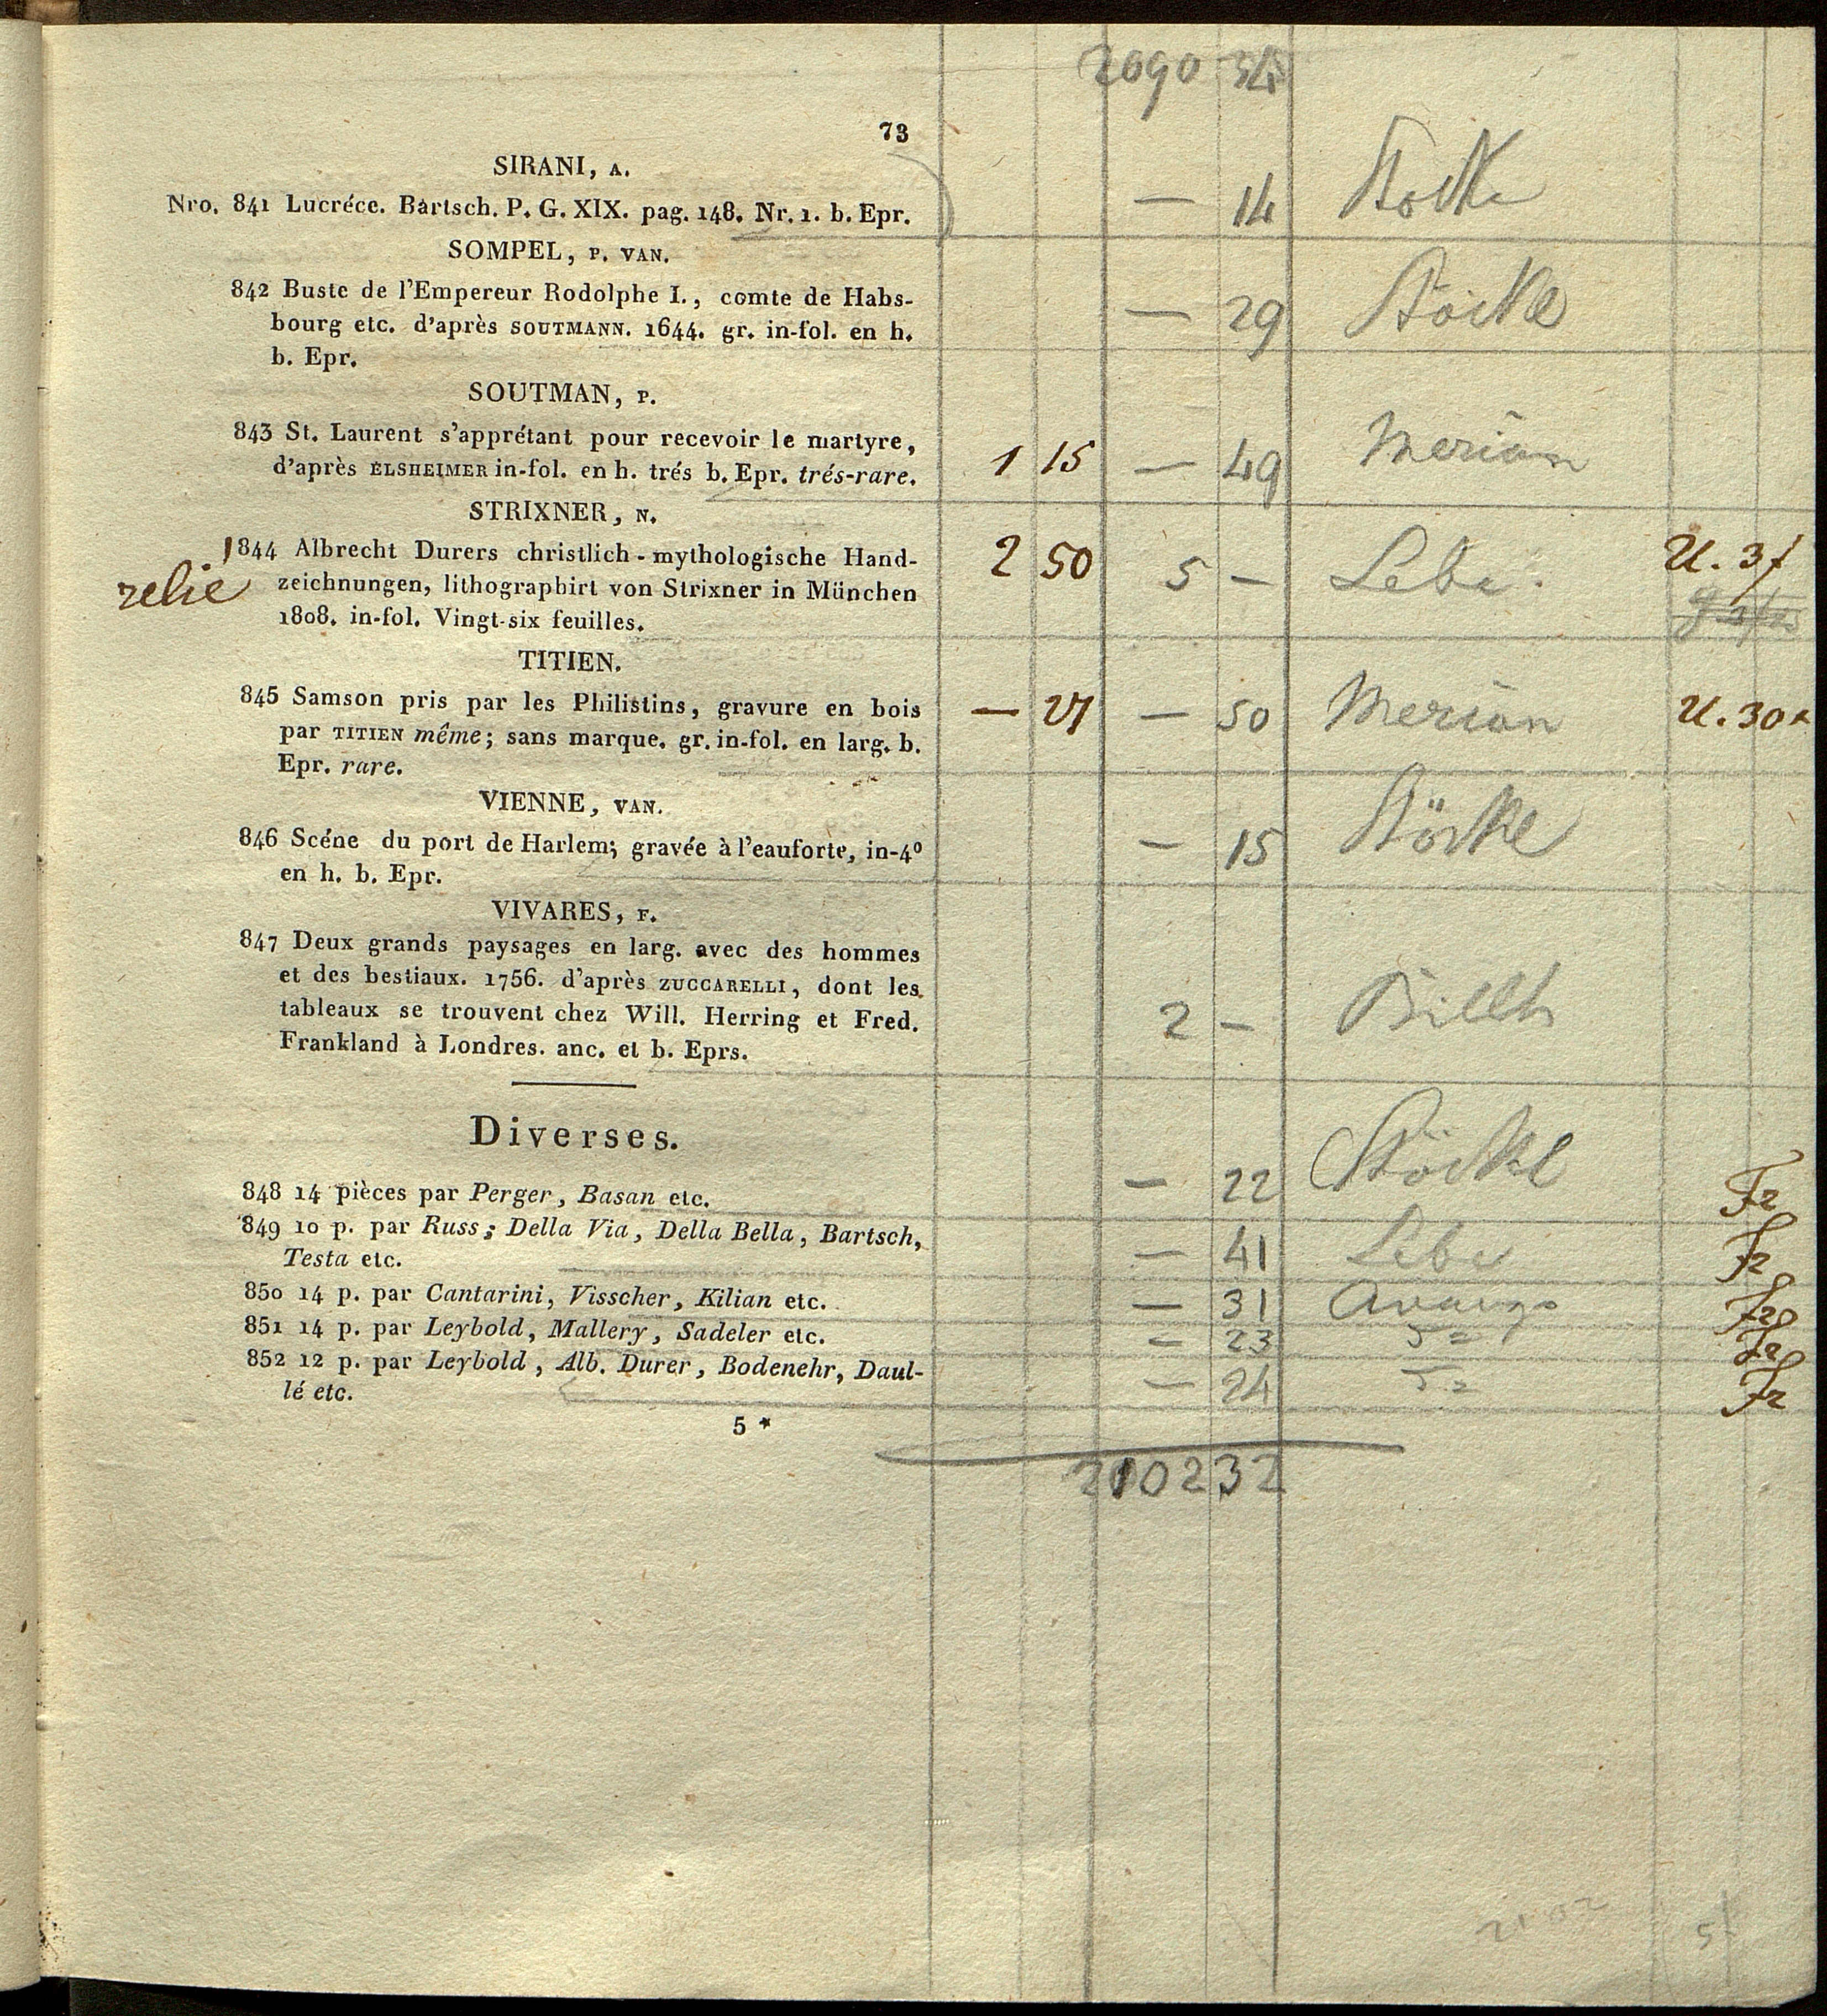 2090 34
73
SIRANI, A.
Nro. 841 Lucréce. Bartsch. P. G. XIX. pag. 148. Nr. 1. b. Epr. — 14
SOMPEL, P. VAN.
842 Buste de l'Empereur Rodolphe I., comte de Habs- — 29 Stöckl
bourg etc. d'après SOUTMANN. 1644. gr. in-fol. en h.
b. Epr.
SOUTMAN, P.
843 St. Laurent s'apprétant pour recevoir le martyre,
d'après ELSHEIMER in-fol. en h. trés b. Epr. trés-rare. 1 15 — 49 Merian
STRIXNER, N.
1844 Albrecht Durers christlich-mythologische Hand- 2 50 5 — U. 3f
relié zeichnungen, lithographirt von Strixner in München
1808. in-fol. Vingt-six feuilles.
TITIEN.
845 Samson pris par les Philistins, gravure en bois — 27 — 50 Merian U. 30x
par TITIEN même; sans marque. gr. in-fol. en larg. b.
Epr. rare.
VIENNE, VAN.
846 Scéne du port de Harlem; gravée à l'eauforte, in-4º — 15 Stöckl
en h. b. Epr.
VIVARES, F.
847 Deux grands paysages en larg. avec des hommes
et des bestiaux. 1756. d'après ZUCCARELLI, dont les
tableaux se trouvent chez Will. Herring et Fred. 2 —
Frankland à Londres. anc. et b. Eprs.
Diverses.
848 14 pièces par Perger, Basan etc. — 22 Stöckl
849 10 p. par Russ; Della Via, Della Bella, Bartsch, — 41
Testa etc.
850 14 p. par Cantarini, Visscher, Kilian etc. — 31
851 14 p. par Leybold, Mallery, Sadeler etc. — 23
852 12 p. par Leybold, Alb. Durer, Bodenehr, Daul- — 24
lé etc.
5 *
2102 32